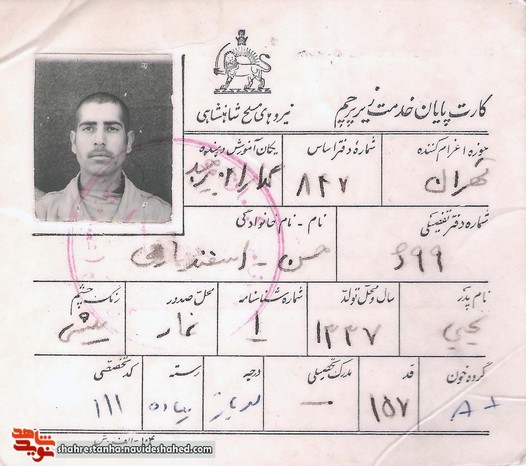 کارت پایان خدمت زیر پرچم
نیروهای مسلح شاهنشاهی
حوزه اعزام کننده
شماره دفتر اساس
یکان آموزش دهنده
تهران
۸۴۷
شماره دفتر تفصیلی
نام - نام خانوادگی
۶۹۹
حسن - اسفندیاری
نام پدر
سال و محل تولد
شماره شناسنامه
محل صدور
رنگ چشم
یحیی
۱۳۳۷
۱
میشی
گروه خون
قد
مدرک تحصیلی
درجه
رسته
کد تخصصی
A+
۱۵۷
—
سرباز
پیاده
۱۱۱
نوید شاهد
shahrestanha.navideshahed.com